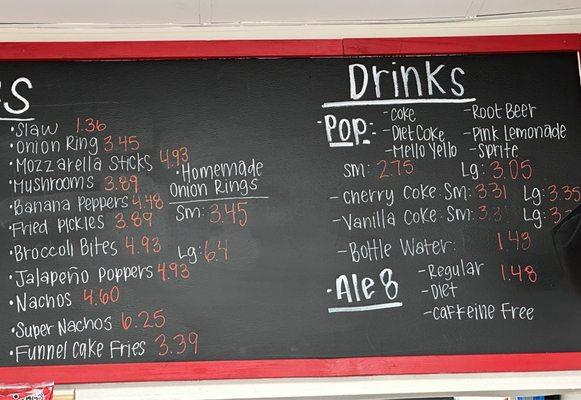 s
• Slaw 1.36
• Onion Ring 3.45
• Mozzarella Sticks 4.93
• Mushrooms 3.89
• Banana Peppers 4.48
• Fried Pickles 3.89
• Broccoli Bites 4.93
• Jalapeño Poppers 4.93
• Nachos 4.60
• Super Nachos 6.25
• Funnel Cake Fries 3.39
• Homemade
Onion Rings
Sm: 3.45
Lg: 6.4
Drinks
• Pop:
- Coke
- Diet Coke
- Mello Yello
- Root Beer
- Pink Lemonade
- Sprite
Sm: 2.75 Lg: 3.05
- Cherry Coke: Sm: 3.31 Lg: 3.35
- Vanilla Coke: Sm: 3.31 Lg:
- Bottle Water: 1.43
• Ale 8
- Regular 1.48
- Diet
- Caffeine Free